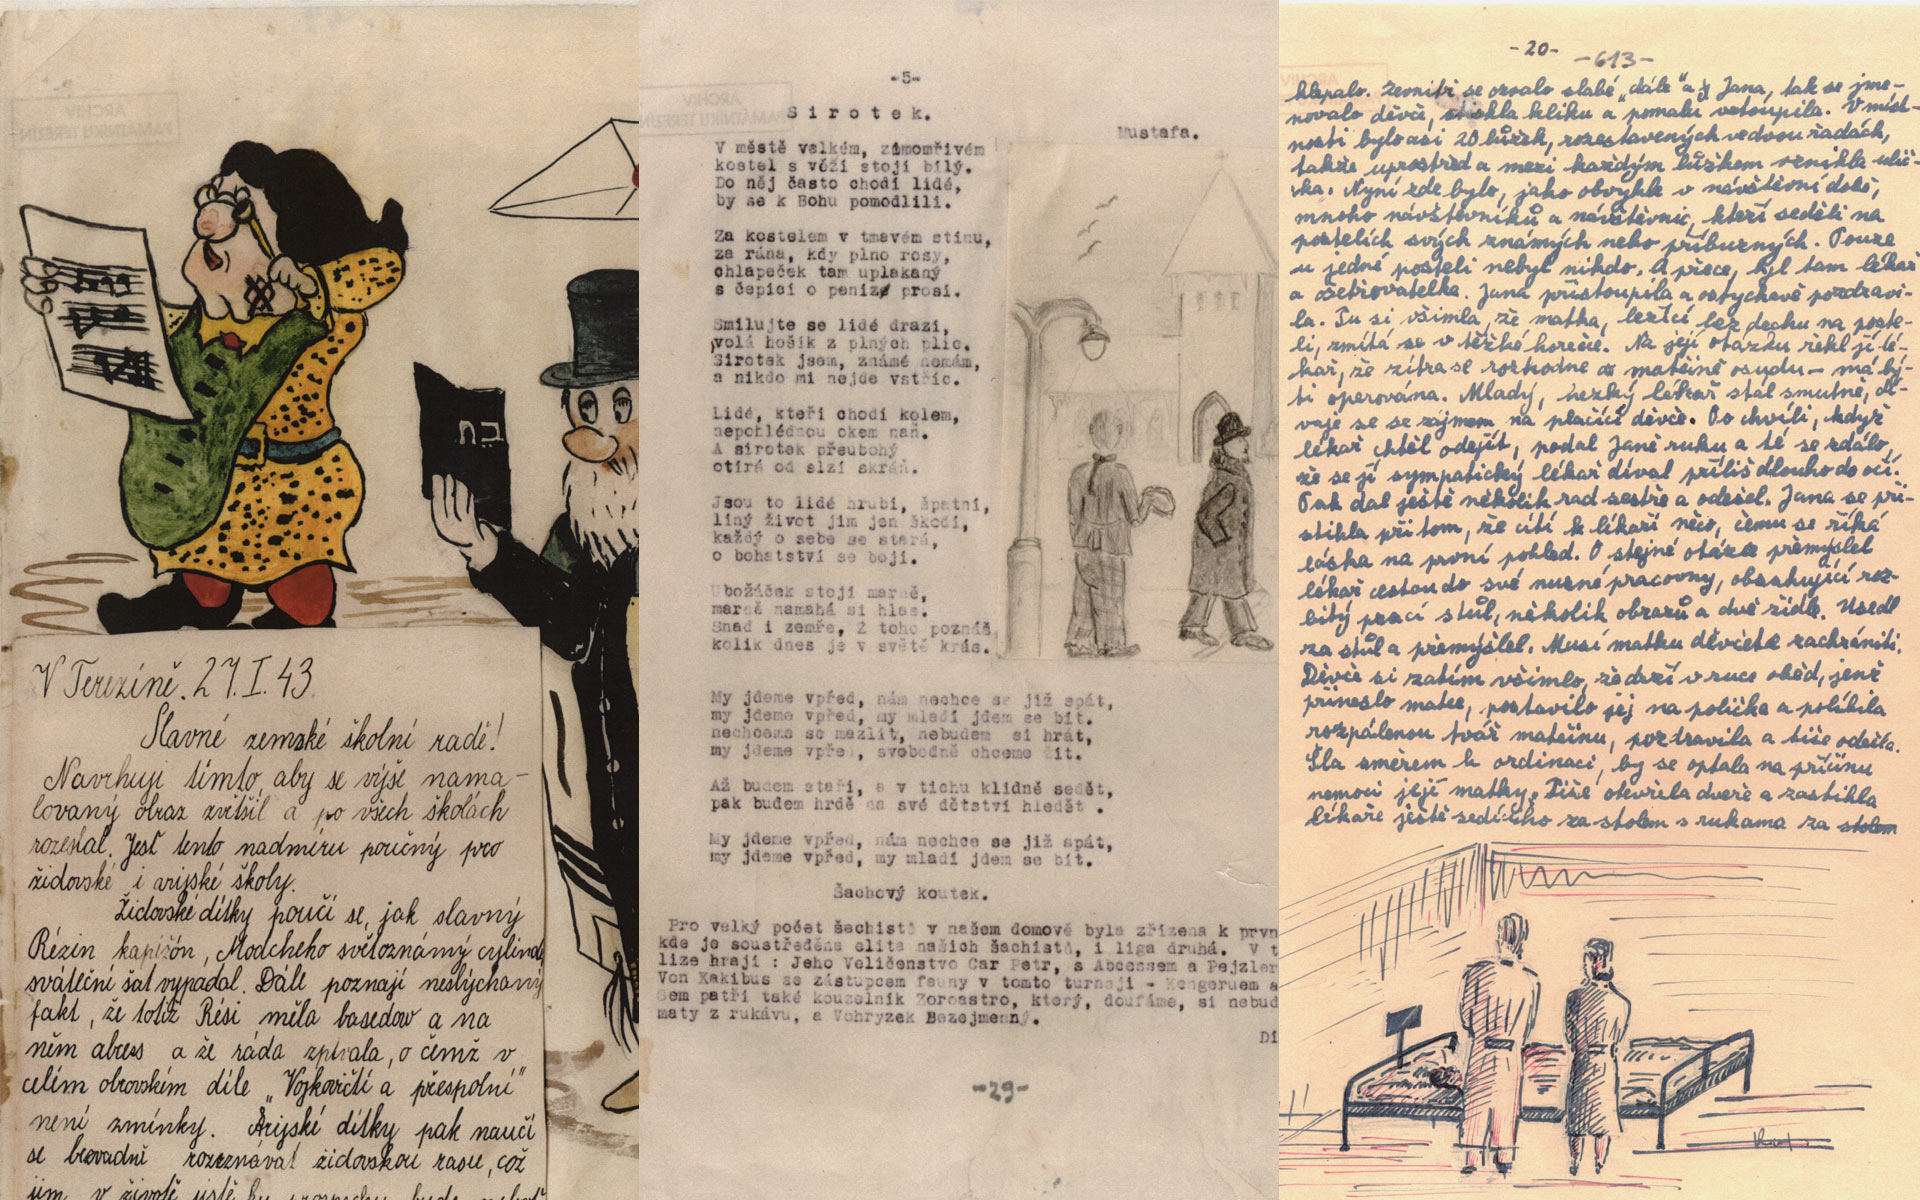 V Terezíně. 27. I. 43
Slavné zemské školní radě!
Navrhuji tímto, aby se výše nama-
lovaný obraz zvětšil a po všech školách
rozeslal. Jesť tento nadmíru poučný pro
židovské i arijské školy.
Židovské dítky poučí se, jak slavný
Rézin kapišón, Modcheho světoznámý cylindr
sváteční šat vypadal. Dále poznají neslýchaný
fakt, že totiž Rési měla basedow a na
něm abses a že ráda zpívala, o čemž v
celém obrovském díle „Vojkovičtí a přespolní"
není zmínky. Arijské dítky pak naučí
se bezvadně rozeznávat židovskou rasu, což
jim v životě jistě ku prospěchu bude
-5-
Sirotek.
V městě velkém, zimomřivém
kostel s věží stojí bílý.
Do něj často chodí lidé,
by se k Bohu pomodlili.
Za kostelem v tmavém stínu,
za rána, kdy plno rosy,
chlapeček tam uplakaný
s čepicí o peníze prosí.
Smilujte se lidé drazí,
volá hošík z plných plic.
Sirotek jsem, známé nemám,
a nikdo mi nejde vstříc.
Lidé, kteří chodí kolem,
nepohlédnou okem naň.
A sirotek přeubohý
otírá od slzí skráň.
Jsou to lidé hrubí, špatní,
líný život jim jen škodí,
každý o sebe se stará,
o bohatství se bojí.
Ubožáček stojí marně,
marně namahá si hlas.
Snad i zemře, z toho poznáš
kolik dnes je v světě krás.
Mustafa.
My jdeme vpřed, nám nechce se již spát,
my jdeme vpřed, my mladí jdem se bít.
nechceme se mazlit, nebudem si hrát,
my jdeme vpřed, svobodně chceme žít.
Až budem staří, a v tichu klidně sedět,
pak budem hrdě na své dětství hledět .
My jdeme vpřed, nám nechce se již spát,
my jdeme vpřed, my mladí jdem se bít.
Šachový koutek.
Pro velký počet šachistů v našem domově byla zřízena k prvn
kde je soustředěna elita našich šachistů, i liga druhá. V t
lize hrají : Jeho Veličenstvo Car Petr, s Abcessem a Pejzler
Von Kakibus se zástupcem fauny v tomto turnaji - Kengeruem a
Sem patří také kouzelník Zoroastro, který, doufáme, si nebud
maty z rukávu, a Vohryzek Bezejmenný.
Di
-29-
-20- -613-
klepalo. Zevnitř se ozvalo slabé „dále" a Jana, tak se jme-
novalo děvče, stiskla kliku a pomalu vstoupila. V míst-
nosti bylo asi 20 lůžek, rozestavených ve dvou řadách,
takže uprostřed a mezi každým lůžkem vznikla ulič-
ka. Nyní zde bylo, jako obvykle v návštěvní době,
mnoho návštěvníků a návštěvnic, kteří seděli na
postelích svých známých nebo příbuzných. Pouze
u jedné posteli nebyl nikdo. A přece, byl tam lékař
a ošetřovatelka. Jana přistoupila a ostychavě pozdravi-
la. Tu si všimla, že matka, ležící bez dechu na poste-
li, zmítá se v těžké horečce. Na její otázku řekl jí lé-
kař, že zítra se rozhodne o matčině osudu – má bý-
ti operována. Mladý, hezký lékař stál smutně, dí-
vaje se se zájmem na plačící děvče. Po chvíli, když
lékař chtěl odejít, podal Janě ruku a té se zdálo,
že se jí sympatický lékař díval příliš dlouho do očí.
Pak dal ještě několik rad sestře a odešel. Jana se při-
stihla při tom, že cítí k lékaři něco, čemu se říká
láska na první pohled. O stejné otázce přemýšlel
lékař cestou do své nuzné pracovny, obsahující roz-
bitý prací stůl, několik obrazů a dvě židle. Usedl
za stůl a přemýšlel. Musí matku děvčete zachrániti.
Děvče si zatím všimlo, že drží v ruce oběd, jenž
přineslo matce, postavilo jej na poličku a políbila
rozpálenou tvář matčinu, pozdravila a tiše odešla.
Šla směrem k ordinaci, by se optala na příčinu
nemoci její matky. Tiše otevřela dveře a zastihla
lékaře ještě sedícího za stolem s rukama za stolem